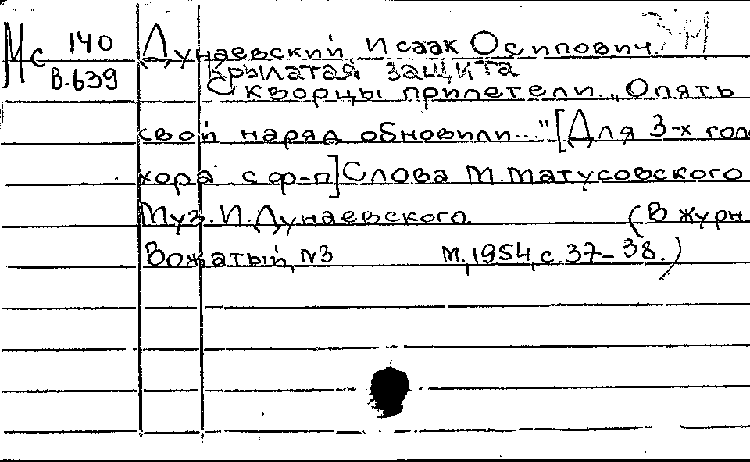 Мс 140 Дунаевский Исаак Осипович. ЗН
В.639 Крылатая защита
Скворцы прилетели... „Опять
свой наряд обновили..." [Для 3-х гол
хора с ф-п] Слова М. Матусовского
Муз. И. Дунаевского (В журн
Вожатый, №3 М, 1954, с. 37-38.)